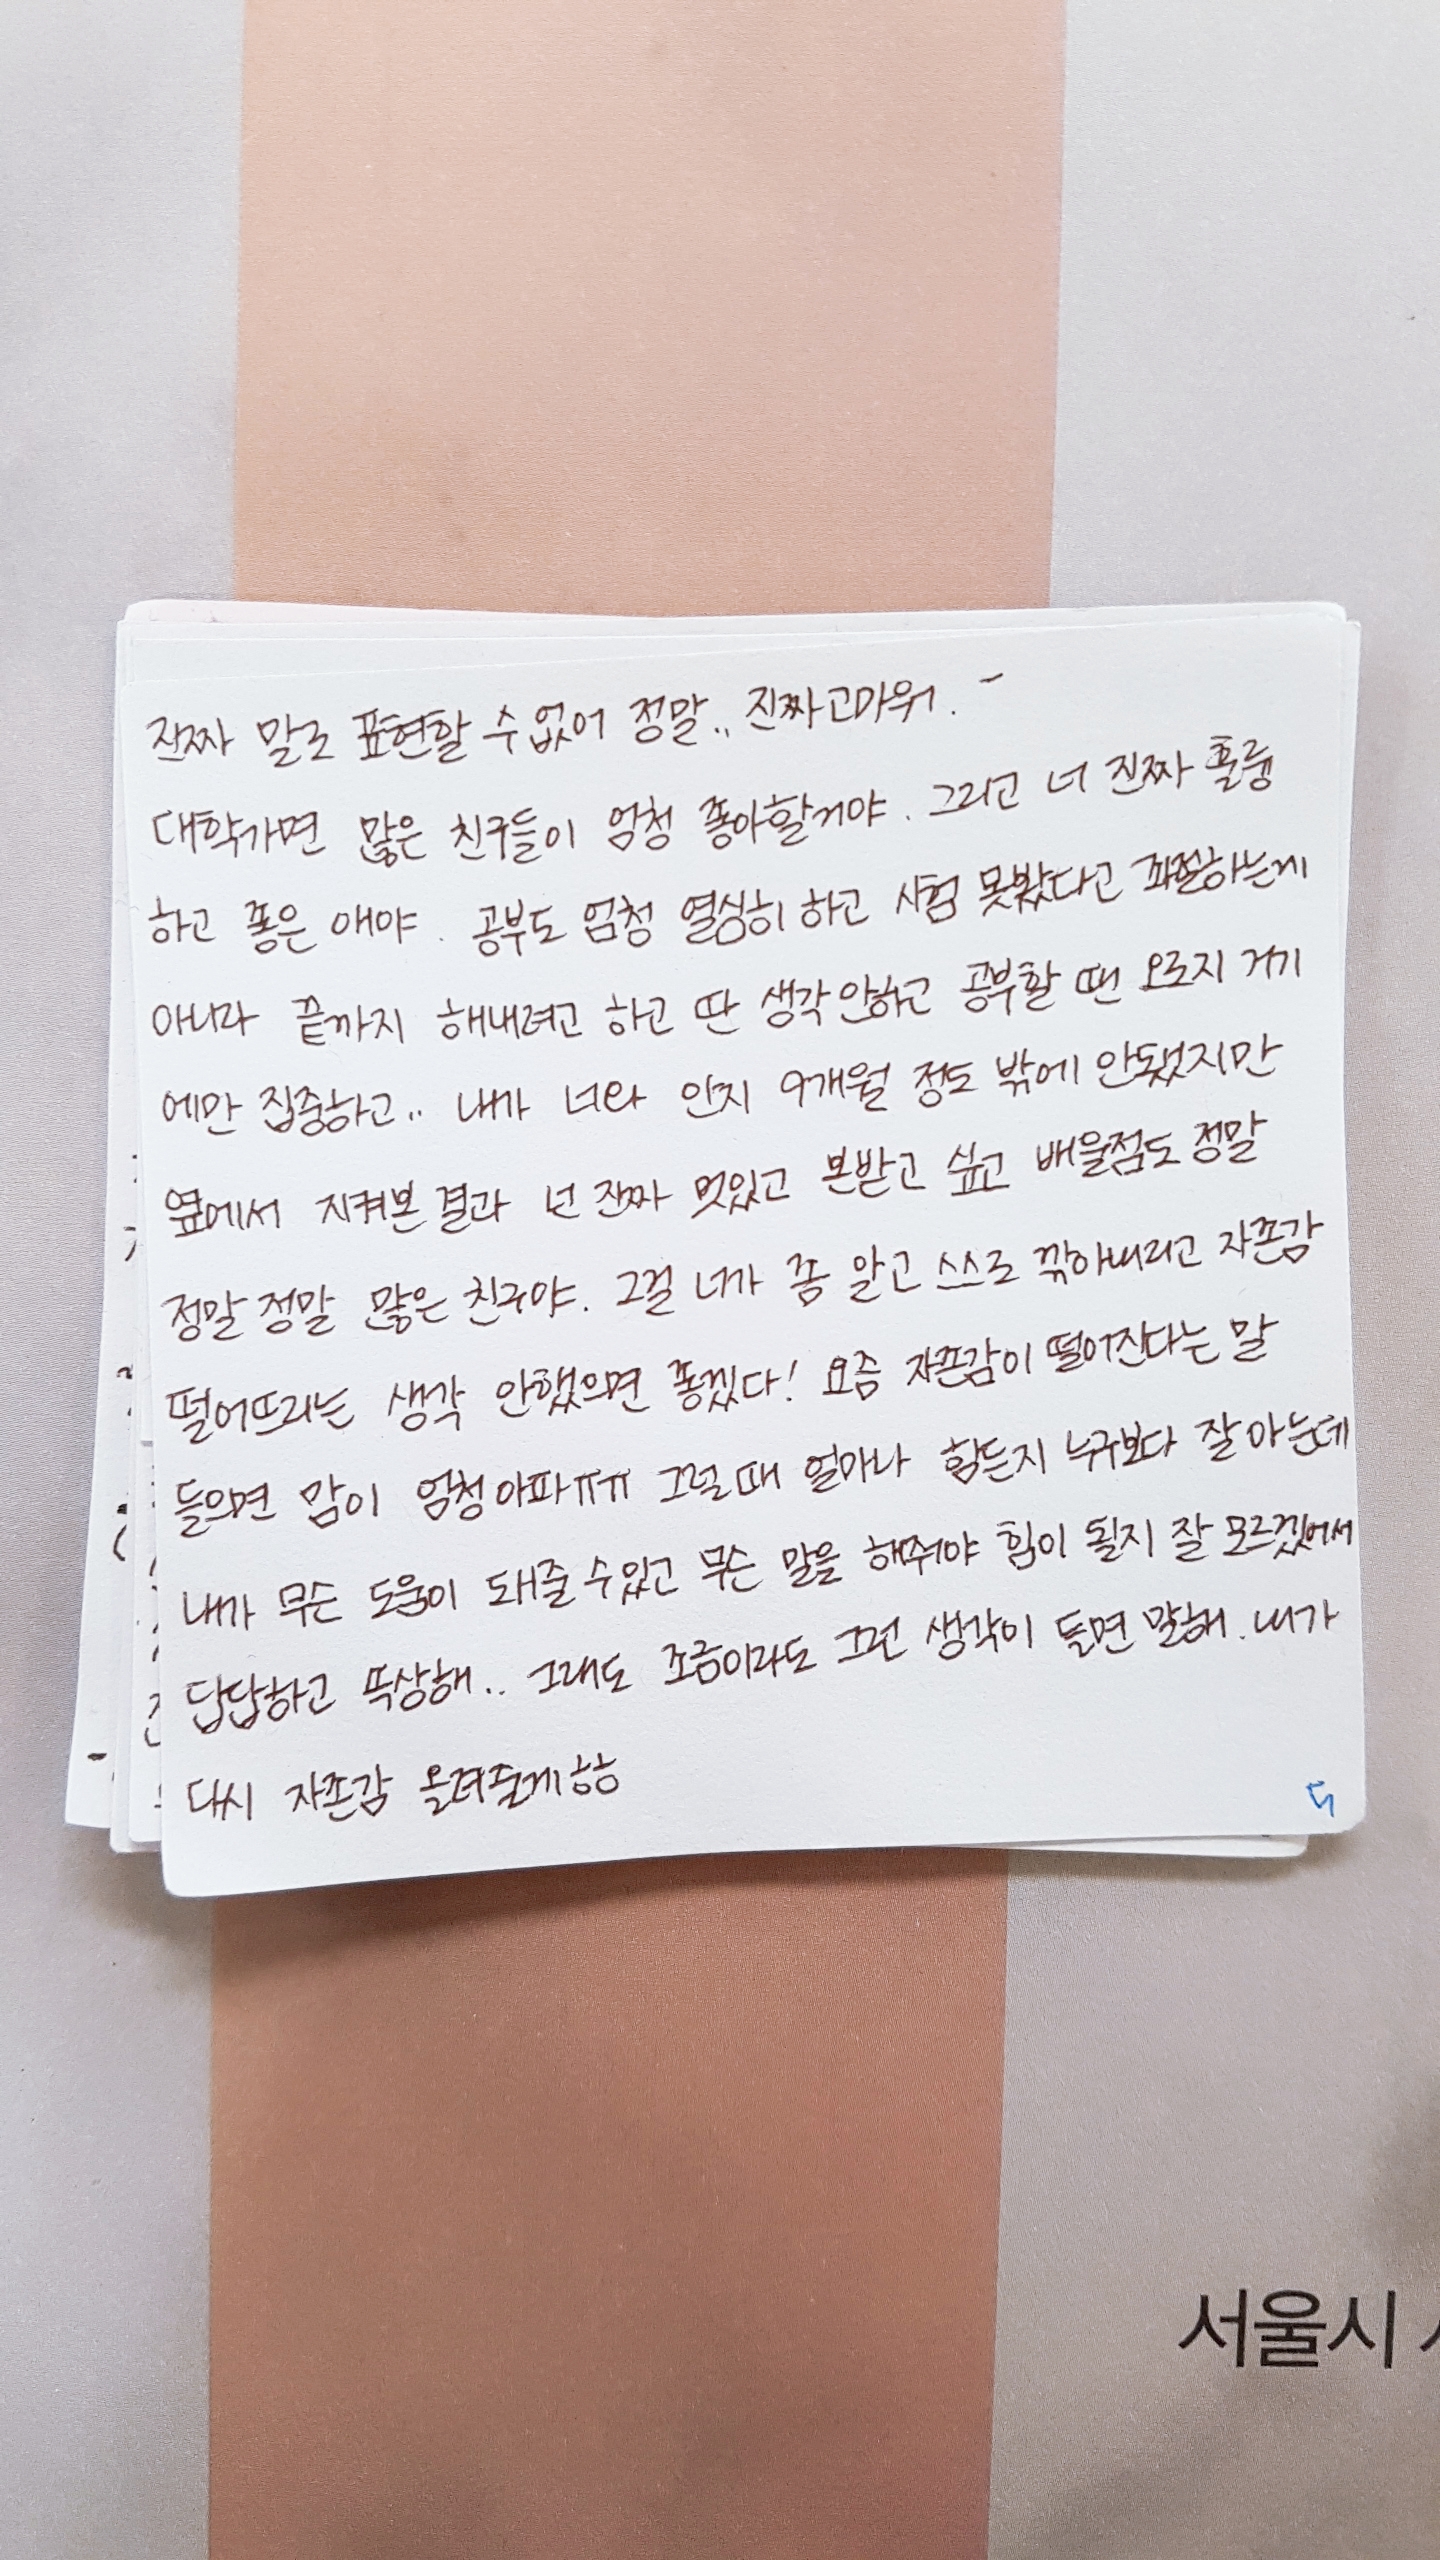 진짜 말로 표현할 수 없어 정말.. 진짜고마워.
대학가면 많은 친구들이 엄청 좋아할거야. 그리고 너 진짜 훌륭
하고 좋은 애야. 공부도 엄청 열심히 하고 시험 못봤다고 좌절하는게
아니라 끝까지 해내려고 하고 딴 생각안하고 공부할 땐 오로지 거기
에만 집중하고.. 내가 너와 안지 9개월 정도 밖에 안됐지만
옆에서 지켜본 결과 넌 진짜 멋있고 본받고 싶고 배울점도 정말
정말 정말 많은 친구야. 그걸 너가 좀 알고 스스로 깎아내리고 자존감
떨어뜨리는 생각 안했으면 좋겠다! 요즘 자존감이 떨어진다는 말
들으면 맘이 엄청아파ㅠㅠ 그럴때 얼마나 힘든지 누구보다 잘 아는데
내가 무슨 도움이 돼줄 수 있고 무슨 말을 해줘야 힘이 될지 잘 모르겠어서
답답하고 속상해.. 그래도 조금이라도 그런 생각이 들면 말해. 내가
다시 자존감 올려줄게ㅎㅎ
서울시